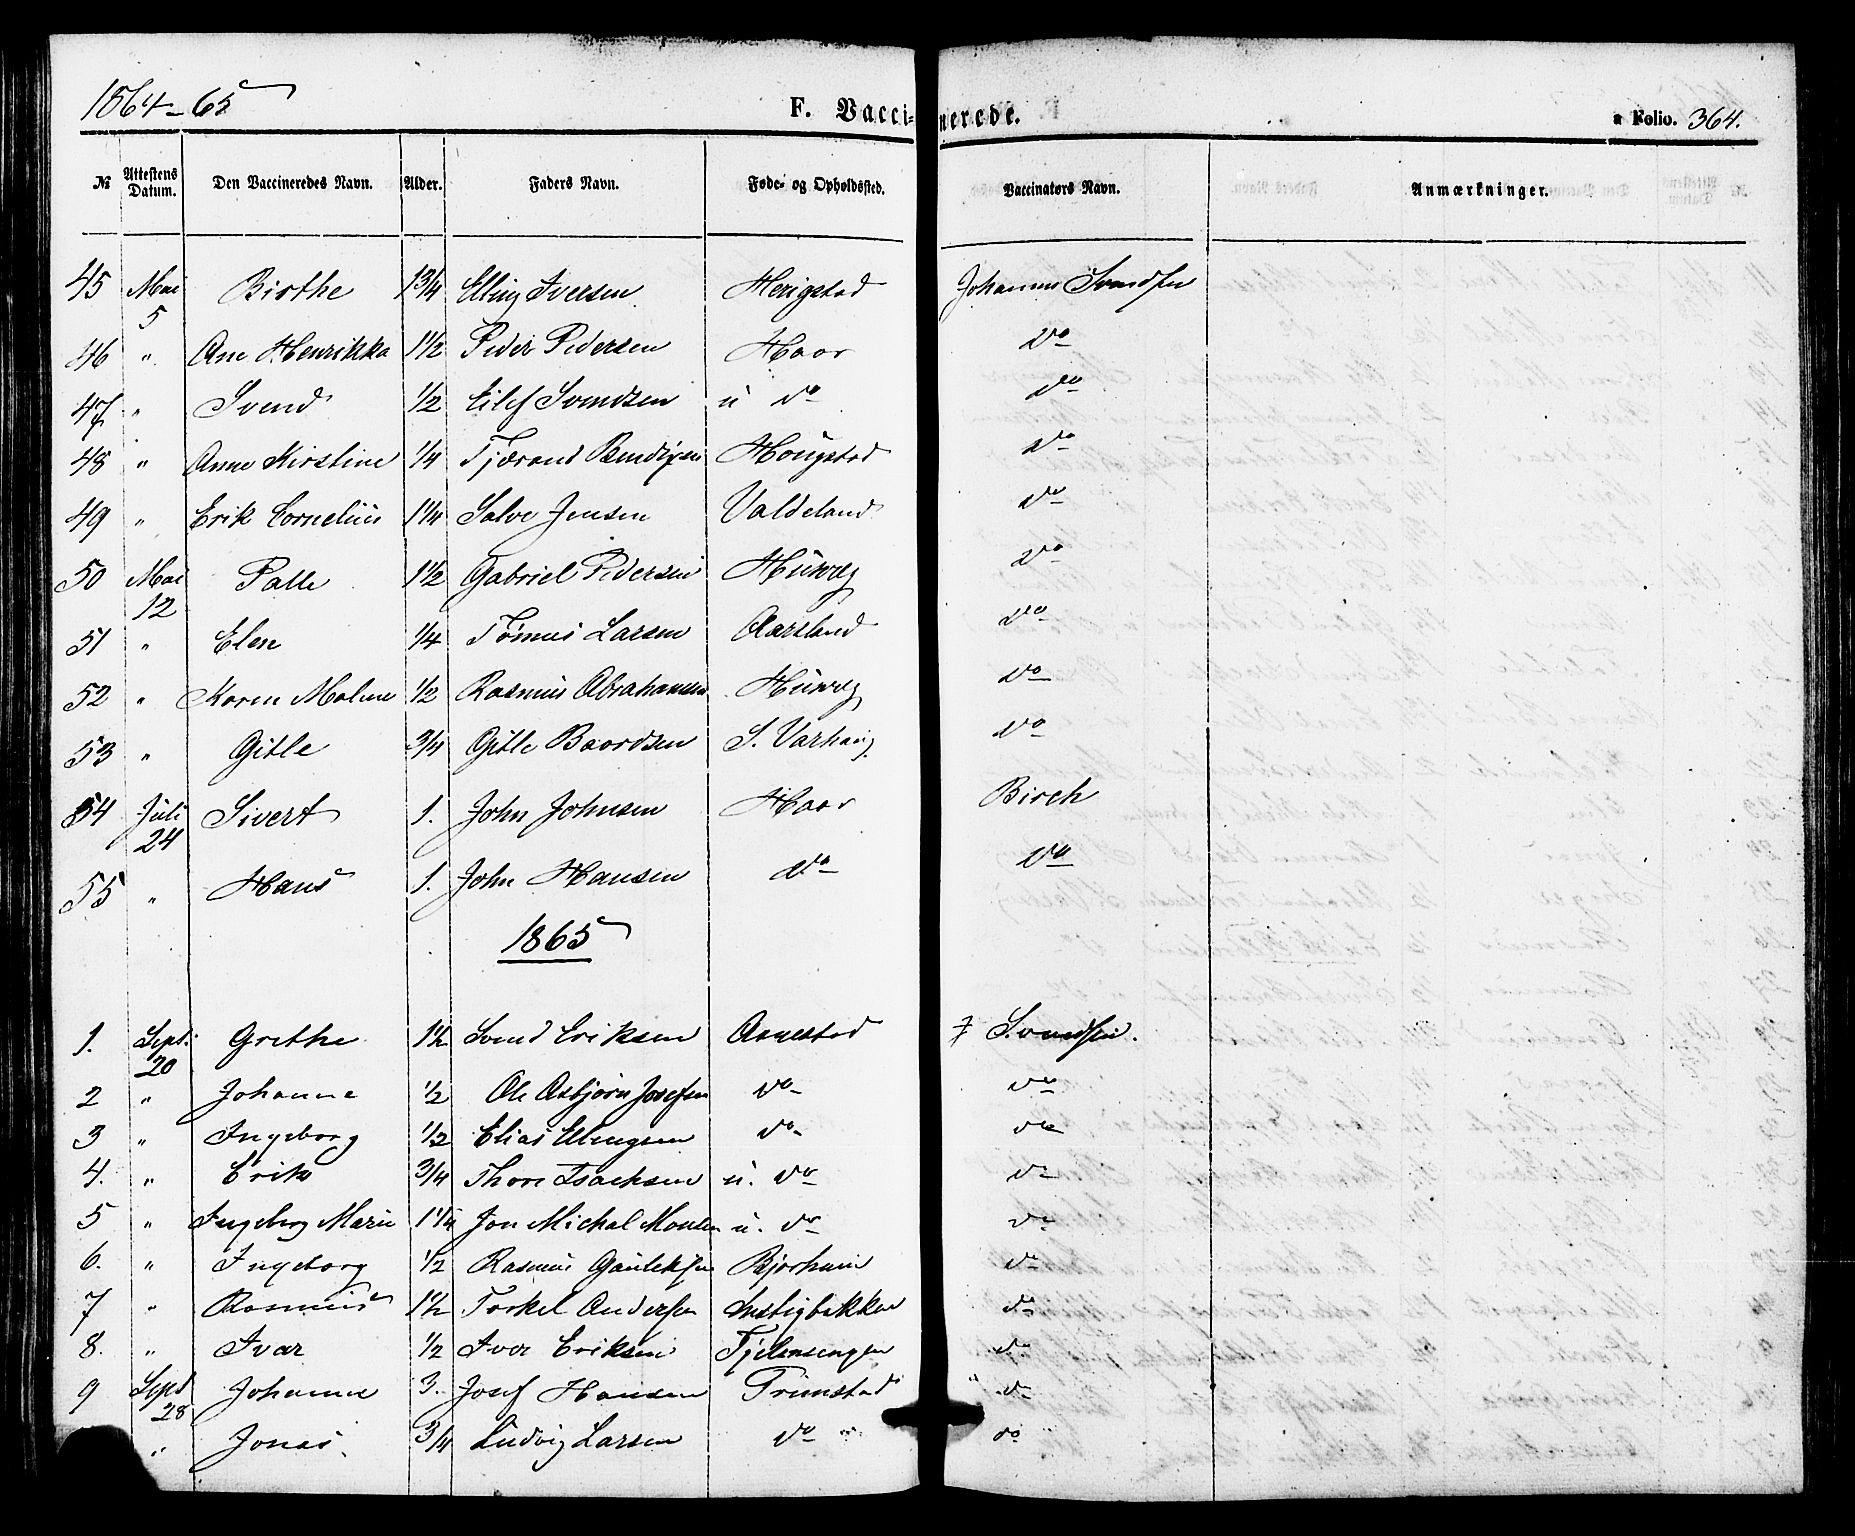 1864-65
F. Vaccinerede.
Folio. 364.
№ Attestens Datum. Den Vaccineredes Navn. Alder. Faders Navn. Føde- og Opholdssted. Vaccinators Navn. Anmærkninger.
45 Mai 5 Birthe 1 3/4 Elling Iversen Herigstad Johannes Svendsen
46 " Ane Henrikka 1 1/2 Peder Pedersen Haar do
47 " Svend 1/2 Eilef Svendsen u do do
48 " Anne Kirstine 1/4 Tjærand Bendixsen Hougstad do
49 " Erik Cornelius 1 1/4 Salve Jensen Valdeland do
50 Mai 12 Palle 1 1/2 Gabriel Pedersen do
51 " Elen 1/4 Tønnes Larsen Aarsland do
52 " Karen Maline 1/2 Rasmus Abrahamsen do
53 " Gitle 3/4 Gitle Baardsen S. Varhaug do
54 Juli 24 Sivert 1. John Johnsen Haar Birch
55 " Hans 1. John Hansen do do
1865
1. Sept: 20 Grethe 1 1/2 Svend Eriksen Aanestad Svendsen.
2 " Johanne 1/2 Ole Asbjørn Josefsen do do
3 " Ingeborg 1/2 Elias Ellingsen do do
4. " Erik 3/4 Thore Isachsen u. do do
5 " Ingeborg Marie 1 1/4 Jon Michal u. do do
6. " Ingeborg 1/2 Rasmus Gauteksen Bjorhuin do
7 " Rasmus 1 1/2 Torkel Andersen do
8. " Ivar 1/2 Iver Eriksen do
9 Sept 28 Johanne 3. Josef Hansen Grimstad do
" Jonas 3/4 Ludvig Larsen do do